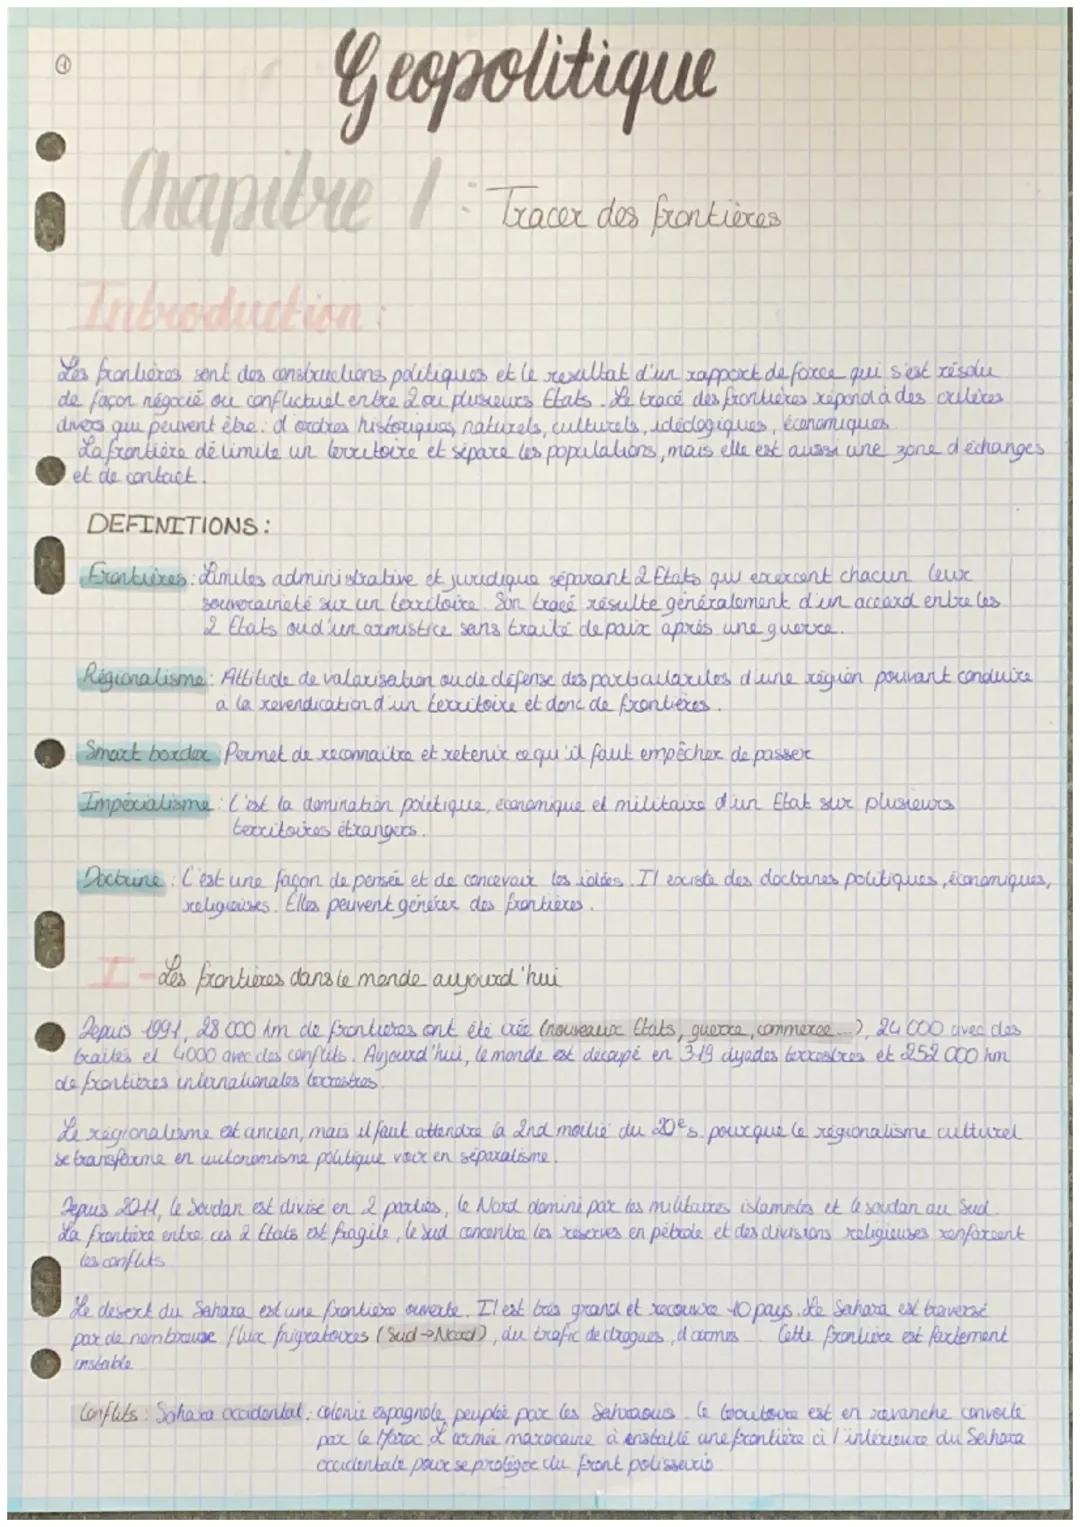 1
Geopolitique
Chapitre 1 : Tracer des frontières
Introduction :
Les frontières sont des constructions politiques et le resultat d'un rapport de force qui s'est résolu
de façon négocié ou conflictuel entre 2 ou plusieurs Etats. Le tracé des frontières répond à des critères
divers qui peuvent être : d'ordres historiques, naturels, culturels, idéologiques, économiques.
La frontière délimite un territoire et sépare les populations, mais elle est aussi une zone d'échanges
et de contact.
DEFINITIONS :
Frontières : Limites administrative et juridique séparant 2 Etats qui exercent chacun leur
souveraineté sur un territoire. Son tracé résulte généralement d'un accord entre les
2 Etats ou d'un armistice sans traité de paix après une guerre.
Régionalisme : Attitude de valorisation ou de défense des particularités d'une région pouvant conduire
a la revendication d'un territoire et donc de frontières.
Smart border : Permet de reconnaitre et retenir ce qu'il faut empêcher de passer
Impérialisme : C'est la domination politique, économique et militaire d'un Etat sur plusieurs
territoires étrangers.
Doctrine : C'est une façon de pensée et de concevoir les idées. Il existe des doctrines politiques, économiques,
religieuses. Elles peuvent générer des frontières.
I - Les frontières dans le monde aujourd'hui
Depuis 1991, 28 000 km de frontières ont été créé (nouveaux Etats, guerre, commerce...), 24 000 avec des
traités et 4000 avec des conflits. Aujourd'hui, le monde est découpé en 319 dyades terrestres et 252 000 km
de frontières internationales terrestres.
Le régionalisme est ancien, mais il faut attendre la 2nd moitié du 20e s. pour que le régionalisme culturel
se transforme en autonomisme politique voir en séparatisme.
Depuis 2011, le Soudan est divisé en 2 parties, le Nord dominé par les militaires islamistes et le soudan au Sud.
La frontière entre ces 2 Etats est fragile, le sud concentre les réserves en pétrole et des divisions religieuses renforcent
les conflits.
Le desert du Sahara est une frontière ouverte. Il est très grand et recouvre 10 pays. Le Sahara est traversé
par de nombreuse flux migratoires (Sud → Nord), du trafic de drogues, d'armes... Cette frontière est fortement
instable.
Conflits : Sahara occidental : colonie espagnole, peuplée par les Sahraouis. Ce territoire est en revanche convoité
par le Maroc. L'armée marocaine à installé une frontière à l'intérieure du Sahara
occidentale pour se protéger du front polissario.